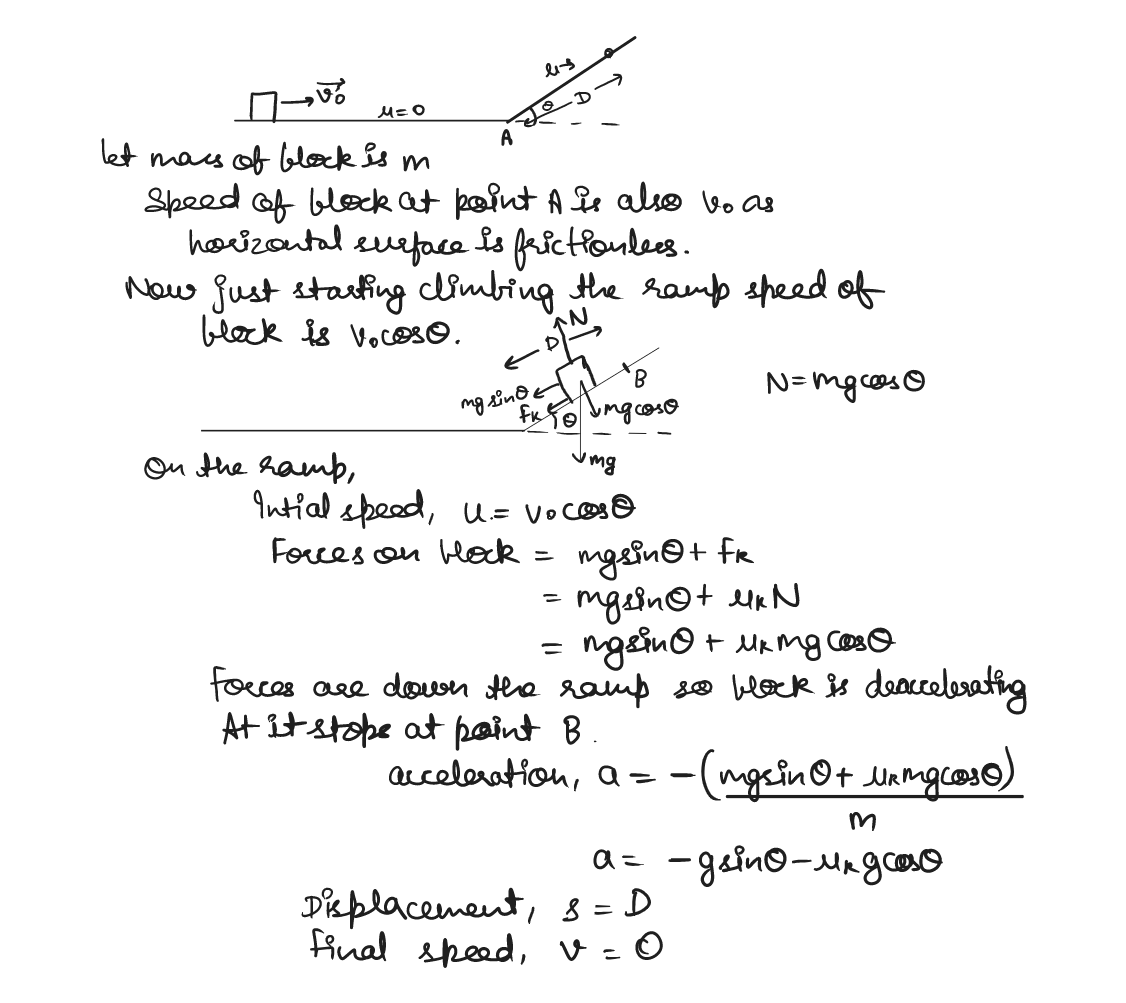 → v₀
μ=0
μ→
θ
D
A
let mass of block is m
Speed of block at point A is also v₀ as
horizontal surface is frictionless.
Now just starting climbing the ramp speed of
block is v₀cosθ.
N
D
B
mgsinθ
fk
θ
mgcosθ
mg
N=mgcosθ
On the ramp,
Intial speed, u = v₀cosθ
Forces on block = mgsinθ + fk
= mgsinθ + μkN
= mgsinθ + μkmgcosθ
Forces are down the ramp so block is deaccelerating
At it stops at point B.
acceleration, a = -(mgsinθ + μkmgcosθ)
m
a = -gsinθ-μkgcosθ
Displacement, s = D
final speed, v = 0